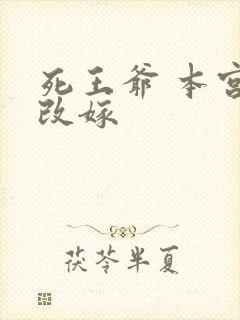 死王爷 本宫
改嫁
茯苓半夏